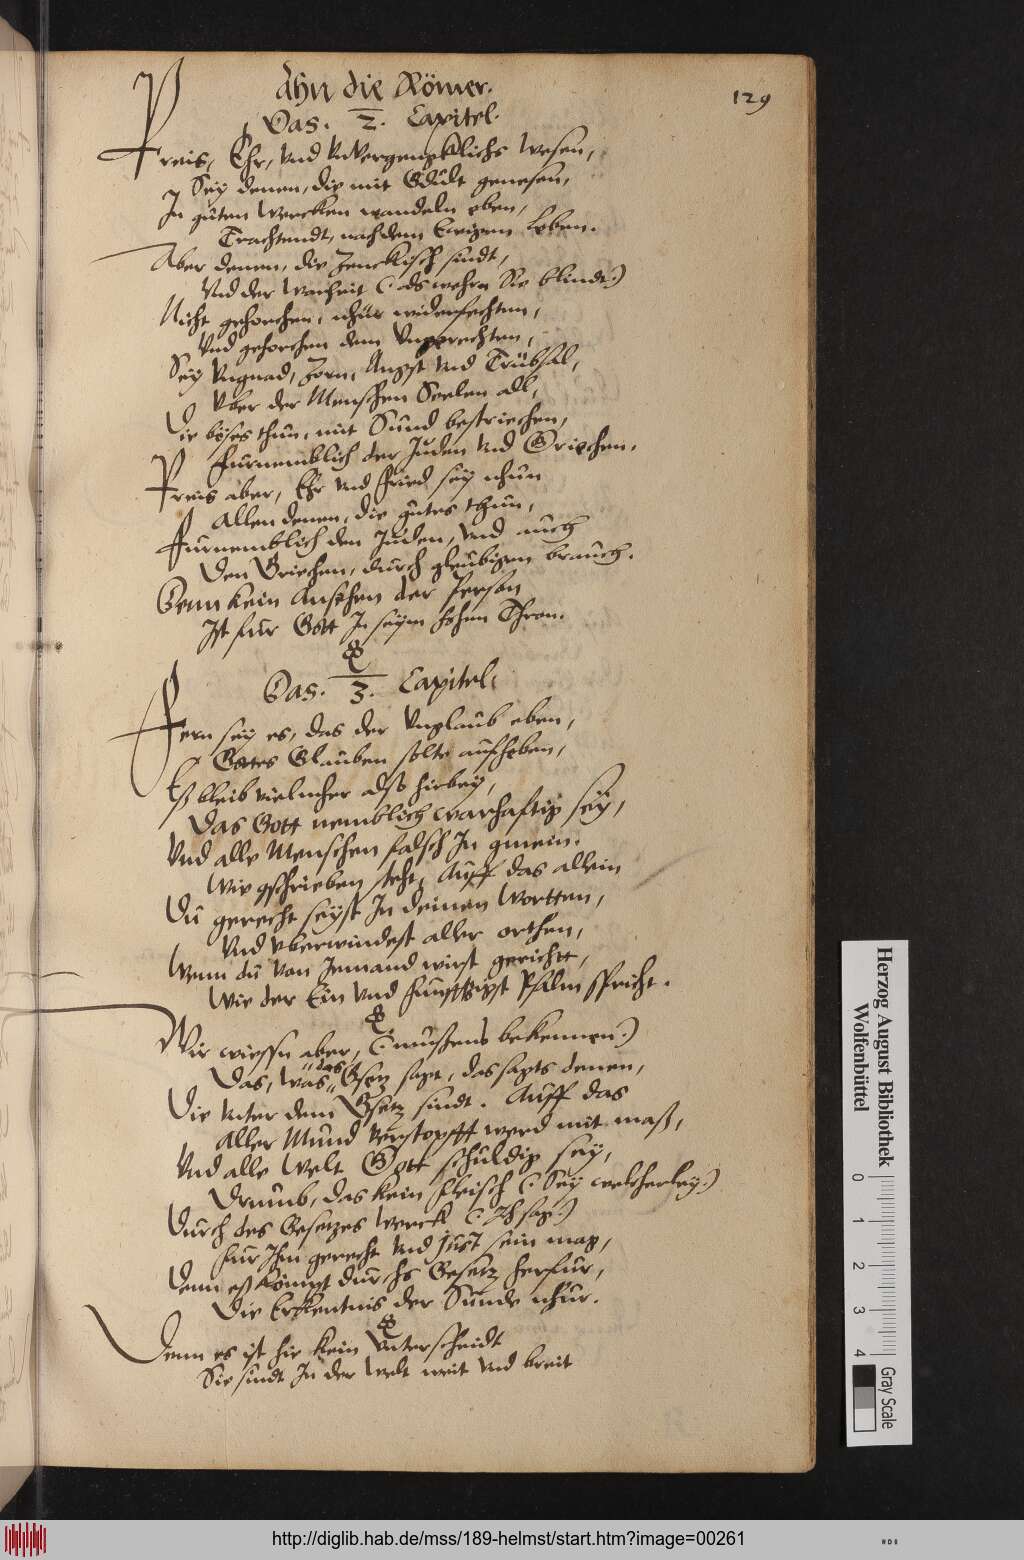 129
Ahn die Römer.
Das. 2. Capitel.
Preis, Ehr, Vnd Vnvergengklichs Wesen,
Sey denen, die mit Gdult genesen,
In guten Wercken wandeln eben,
Trachtendt, nach dem Ewigen Leben.
Aber denen, die Zenckisch sindt,
Vnd der Warheit (: als wehrn Sie blindt:)
Nicht gehorchen, nhur widerfechten,
Vnd gehorchen dem Vngerechten,
Sey Vngnad, Zorn, Angst Vnd Trübsal,
Vber der Menschen Seelen all,
Die böses thun, mit Sünd bestriechen,
Furnemblich der Juden Vnd Griechen.
Preis aber, Ehr Vnd Fried sey nhun
Allen denen, die gutes thun,
Furnemblich den Juden, Vnd auch
Den Griechen, durch gleubigen brauch.
Denn kein Ansehen der Person
Ist fur Gott In seym hohen Thron.
Das. 3. Capitel.
Fern sey es, das der Vnglaub eben,
Gottes Glauben solte aufheben,
Eß bleib vielmher alß hirbey,
Das Gott nemblich warhaftig sey,
Vnd alle Menschen falsch In gmein.
Wie gschrieben steht, Auff das allein
Du gerecht seyst In deinen Wortten,
Vnd vberwindest aller orthen,
Wenn du Von Jemand wirst gerichtt,
Wie der Ein Vnd Funfftzigst Psalm spricht.
Wir wiessn aber, (: mußens bekennen:)
Das, Was das Gsetz sagt, das sagts denen,
Die Vnter dem Gsetz sindt. Auff das
Aller Mund Verstopfft werd mit maß,
Vnd alle Welt Gott schuldig sey,
Drumb, das kein fleisch (: Sey welcherley:)
Durch des Gesetzes Werck (: Ich sag:)
Fur Ihm gerecht Vnd Just sein mag,
Denn eß kömpt durchs Gesetz herfur,
Die Erkentnis der Sünde nhur.
Denn es ist hie kein Vnterscheidt
Sie sindt In der Welt weit Vnd breit
Herzog August Bibliothek
Wolfenbüttel
0 1 2 3 4
Gray Scale
http://diglib.hab.de/mss/189-helmst/start.htm?image=00261